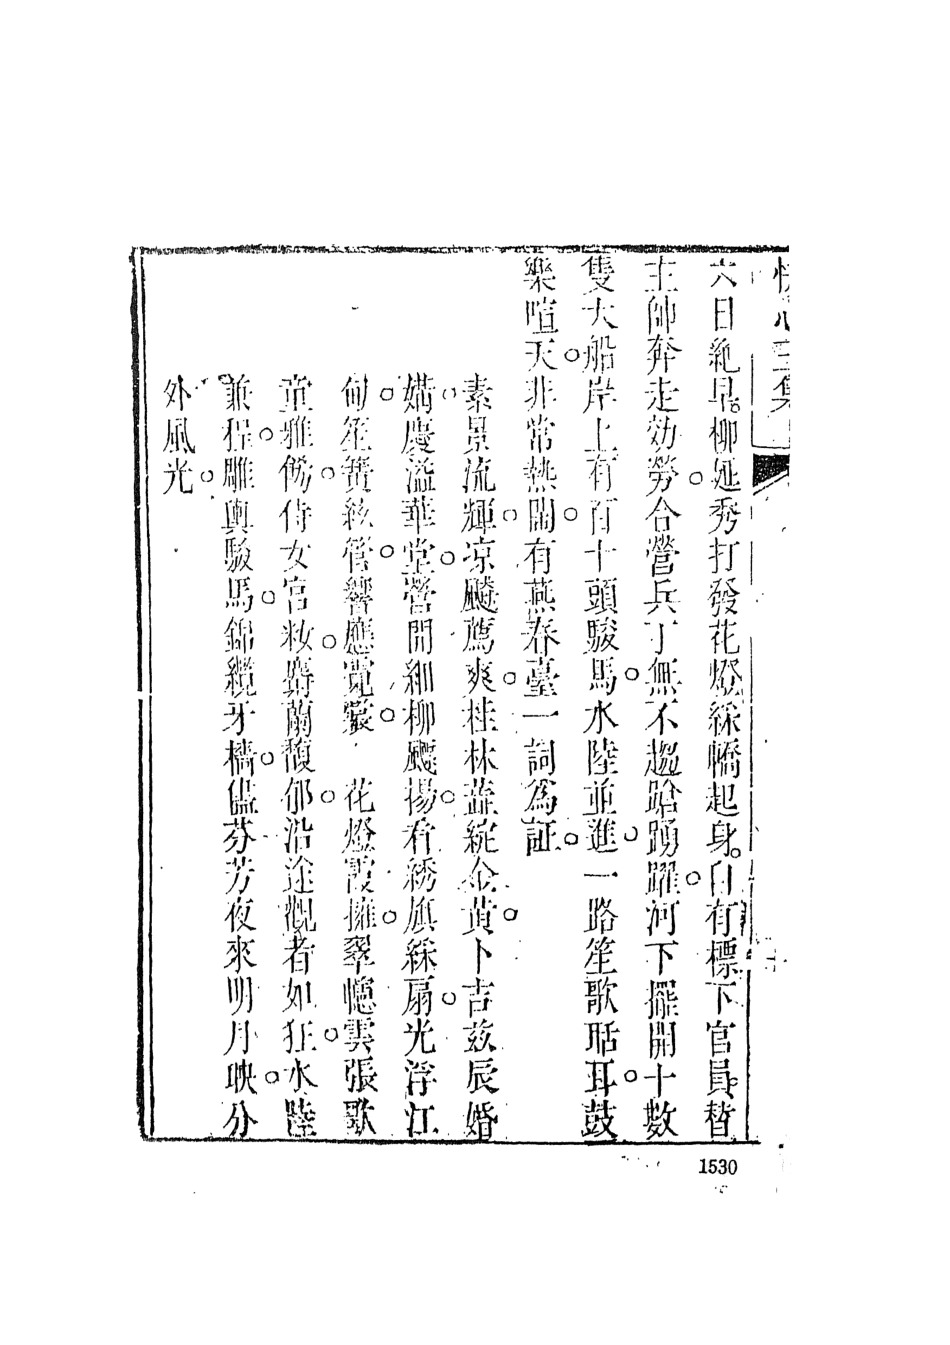 六日絕早。柳延秀打發花燈綵轎起身。自有標下官員。替
主帥奔走効勞。合營兵丁無不趨蹌踴躍。河下擺開十數
隻大船岸上有百十頭駿馬。水陸並進。一路笙歌聒耳。鼓
樂喧天。非常熱鬧。有燕春臺一詞爲証。
素景流輝。凉颸薦爽。桂林蕋綻金黃。卜吉茲辰婚
媾。慶溢華堂。營開細柳颺揚。看綉旗綵扇。光浮江
甸。笙簧絃管。響應霓裳。花燈霞擁。翠幰雲張。歌
童雅飾。侍女官粧。麝蘭馥郁。沿途觀者如狂。水陸
兼程。雕輿駿馬。錦纜牙檣。儘芬芳夜來明月。映分
外風光。
1530